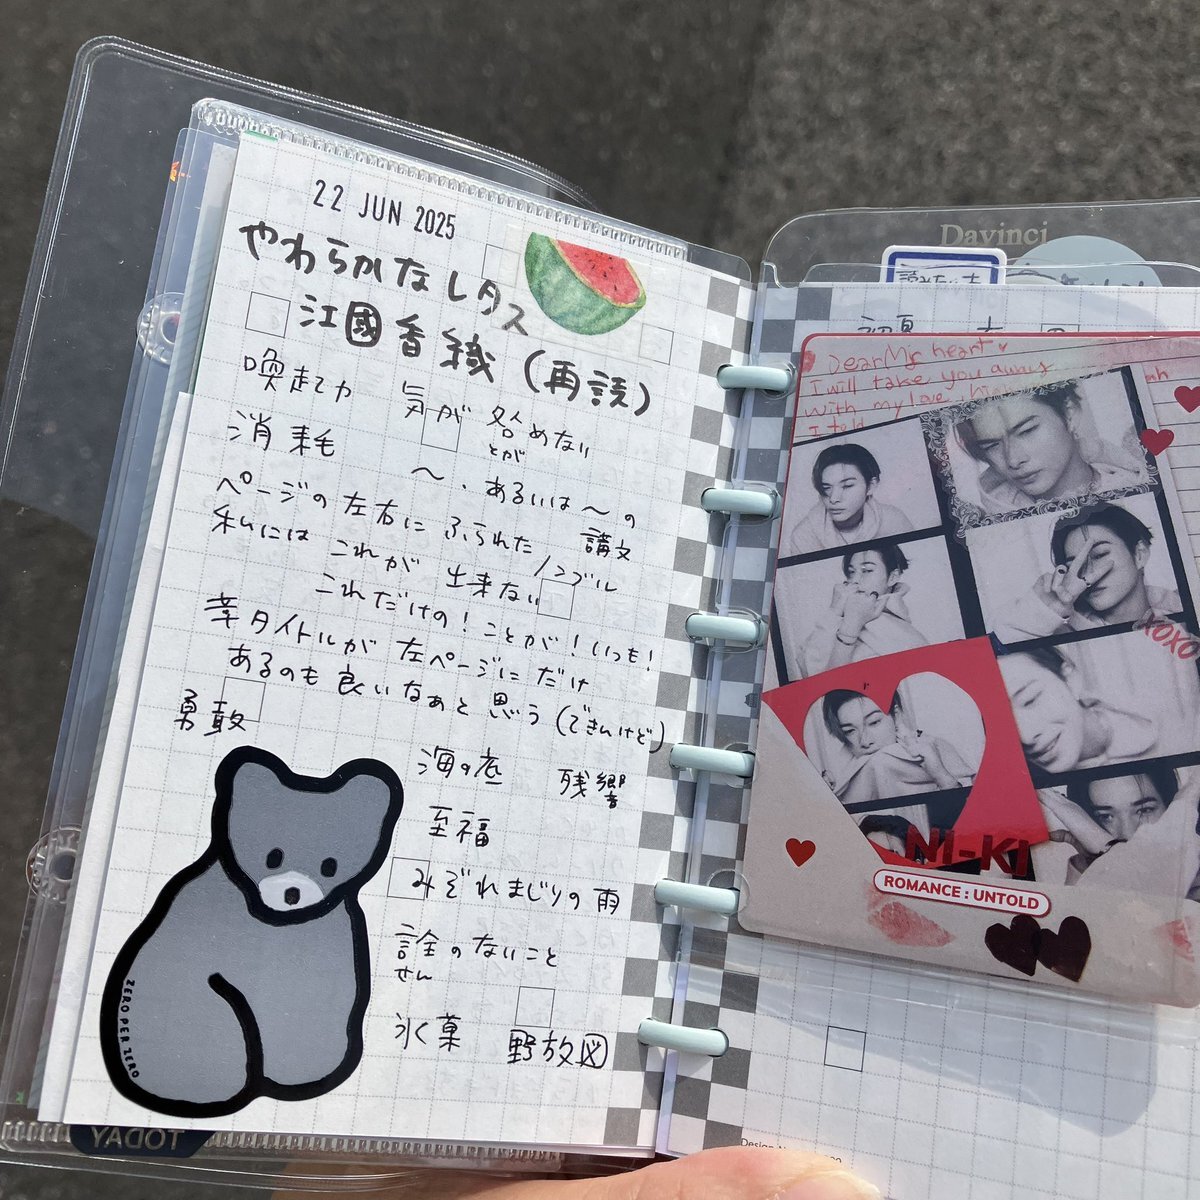 22 JUN 2025
やわらかなレタス
江國香織(再読)
喚起力 気が咎めない
とが
消耗
〜、あるいは〜の
講文
ページの左右にふられたノンブル
私には これが 出来ない
これだけの!ことが!いつも!
章タイトルが左ページにだけ
あるのも良いなあと思う(できんけど)
勇敢
海の底 残響
至福
みぞれまじりの雨
詮のないこと
せん
氷菓 野放図
ZERO PER ZERO
TODAY
Davinci
Dear My heart
I will take you away
with my love
I told
XOXO
NI-KI
ROMANCE : UNTOLD